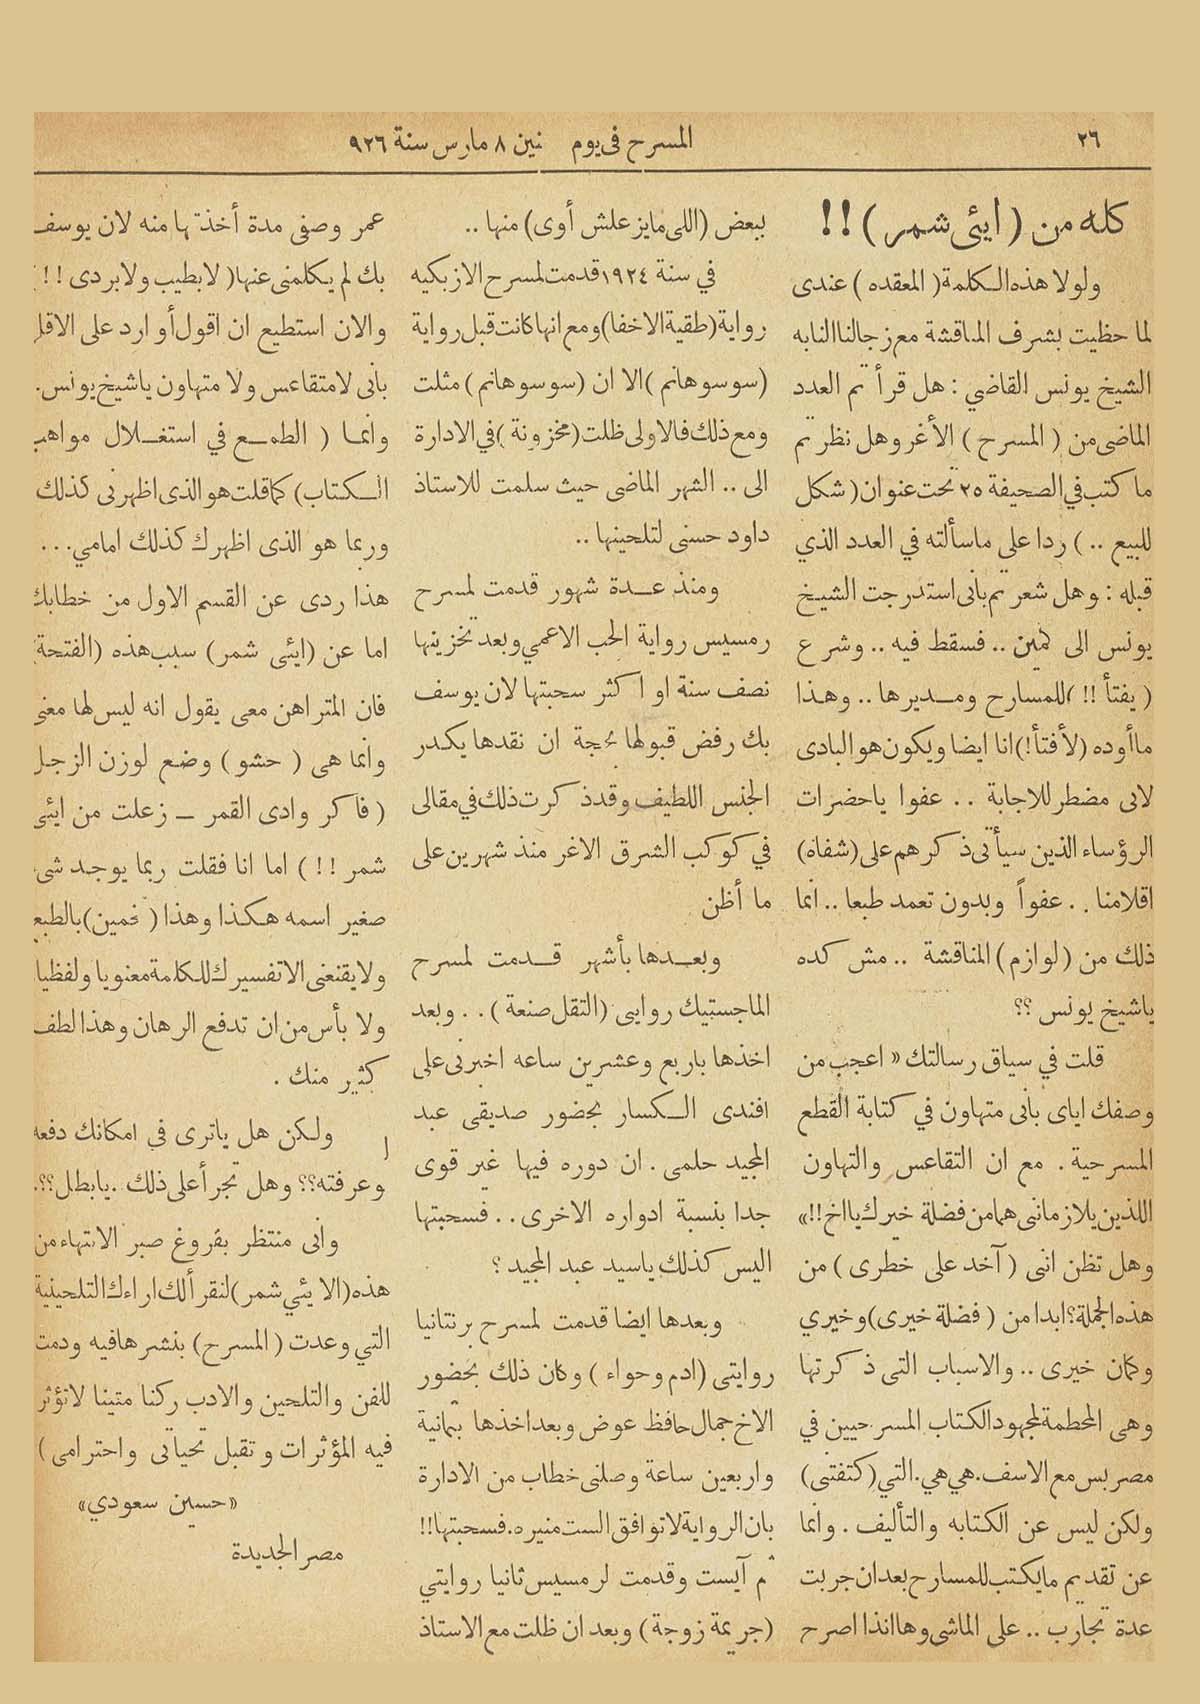 ٢٦
المسرح فى يوم نين ٨ مارس سنة ٩٢٦
كله من (ايئى شمر) !!
ولولا هذه الكلمة (المعقده) عندى
لما حظيت بشرف المناقشة مع زجالنا النابه
الشيخ يونس القاضي : هل قرأتم العدد
الماضى من (المسرح) الأغر وهل نظرتم
ما كتب في الصحيفة ٢٥ تحت عنوان (شكل
للبيع ..) ردا على ما سألته في العدد الذي
قبله : وهل شعرتم بانى استدرجت الشيخ
يونس الى كمين .. فسقط فيه .. وشرع
(يفتأ !!) للمسارح ومديرها .. وهذا
ما أوده (لأفتأ!) انا ايضا ويكون هو البادى
لانى مضطر للاجابة .. عفوا ياحضرات
الرؤساء الذين سيأتى ذكرهم على (شفاة)
اقلامنا .. عفواً وبدون تعمد طبعا .. انما
ذلك من (لوازم) المناقشة .. مش كده
ياشيخ يونس ؟؟
قلت في سياق رسالتك « اعجب من
وصفك اياى بانى متهاون في كتابة القطع
المسرحية . مع ان التقاعس والتهاون
اللذين يلازمانى هما من فضلة خيرك يااخ!!»
وهل تظن انى (آخد على خطرى) من
هذه الجملة؟ ابدا من (فضلة خيرى) وخيري
وكمان خيرى .. والاسباب التى ذكرتها
وهى المحطمة لمجهود الكتاب المسرحيين في
مصر بس مع الاسف. هي هي. التي (كتفتنى)
ولكن ليس عن الكتابه والتأليف . وانما
عن تقديم ما يكتب للمسارح بعد ان جربت
عدة تجارب .. على الماشى وها انذا اصرح
ببعض (اللى مايزعلش أوى) منها ..
في سنة ١٩٢٤ قدمت لمسرح الازبكيه
رواية (طقية الاخفا) ومع انها كانت قبل رواية
(سوسو هانم) الا ان (سوسو هانم) مثلت
ومع ذلك فالاولى ظلت (مخزونة) في الادارة
الى .. الشهر الماضى حيث سلمت للاستاذ
داود حسنى لتلحينها ..
ومنذ عدة شهور قدمت لمسرح
رمسيس رواية الحب الاعمي وبعد تخزينها
نصف سنة او اكثر سحبتها لان يوسف
بك رفض قبولها بحجة ان نقدها يكدر
الجنس اللطيف وقد ذكرت ذلك في مقالى
في كوكب الشرق الاغر منذ شهرين على
ما أظن
وبعدها بأشهر قدمت لمسرح
الماجستيك روايى (التقل صنعة) .. وبعد
اخذها باربع وعشرين ساعه اخبرنى على
افندى الكسار بحضور صديقى عبد
المجيد حلمى . ان دوره فيها غير قوى
جدا بنسبة ادواره الاخرى .. فسحبتها
اليس كذلك ياسيد عبد المجيد ؟
وبعدها ايضا قدمت لمسرح برنتانيا
روايتى (ادم وحواء) وكان ذلك بحضور
الاخ جمال حافظ عوض وبعد اخذها بثمانية
واربعين ساعة وصلنى خطاب من الادارة
بان الرواية لا توافق الست منيره. فسحبتها!!
ثم آيست وقدمت لرمسيس ثانيا روايتي
(جريمة زوجة) وبعد ان ظلت مع الاستاذ
عمر وصفى مدة أخذتها منه لان يوسف
بك لم يكلمنى عنها (لا بطيب ولا بردى !!)
والان استطيع ان اقول أو ارد على الاقل
بانى لا متقاعس ولا متهاون ياشيخ يونس.
وانما (الطمع في استغلال مواهب
الكتاب) كما قلت هو الذى اظهرنى كذلك
وربما هو الذى اظهرك كذلك امامي...
هذا ردى عن القسم الاول من خطابك
اما عن (ايئى شمر) سبب هذه (الفتحة)
فان المتراهن معى يقول انه ليس لها معنى
وانما هى (حشو) وضع لوزن الزجل
(فاكر وادى القمر ـ زعلت من ايئى
شمر !!) اما انا فقلت ربما يوجد شى
صغير اسمه هكذا وهذا (خمين) بالطبع
ولا يقنعنى الا تفسيرك للكلمة معنويا ولفظيا
ولا بأس من ان تدفع الرهان وهذا لطف
كثير منك .
ولكن هل ياترى في امكانك دفعه
وعرفته؟؟ وهل تجرأ على ذلك . يابطل؟؟.
وانى منتظر بفروغ صبر الانتهاء من
هذه (الايئي شمر) لنقرأ لك اراءك التلحينية
التي وعدت (المسرح) بنشرها فيه ودمت
للفن والتلحين والادب ركنا متينا لا تؤثر
فيه المؤثرات وتقبل تحياتى واحترامى)
«حسين سعودي»
مصر الجديدة